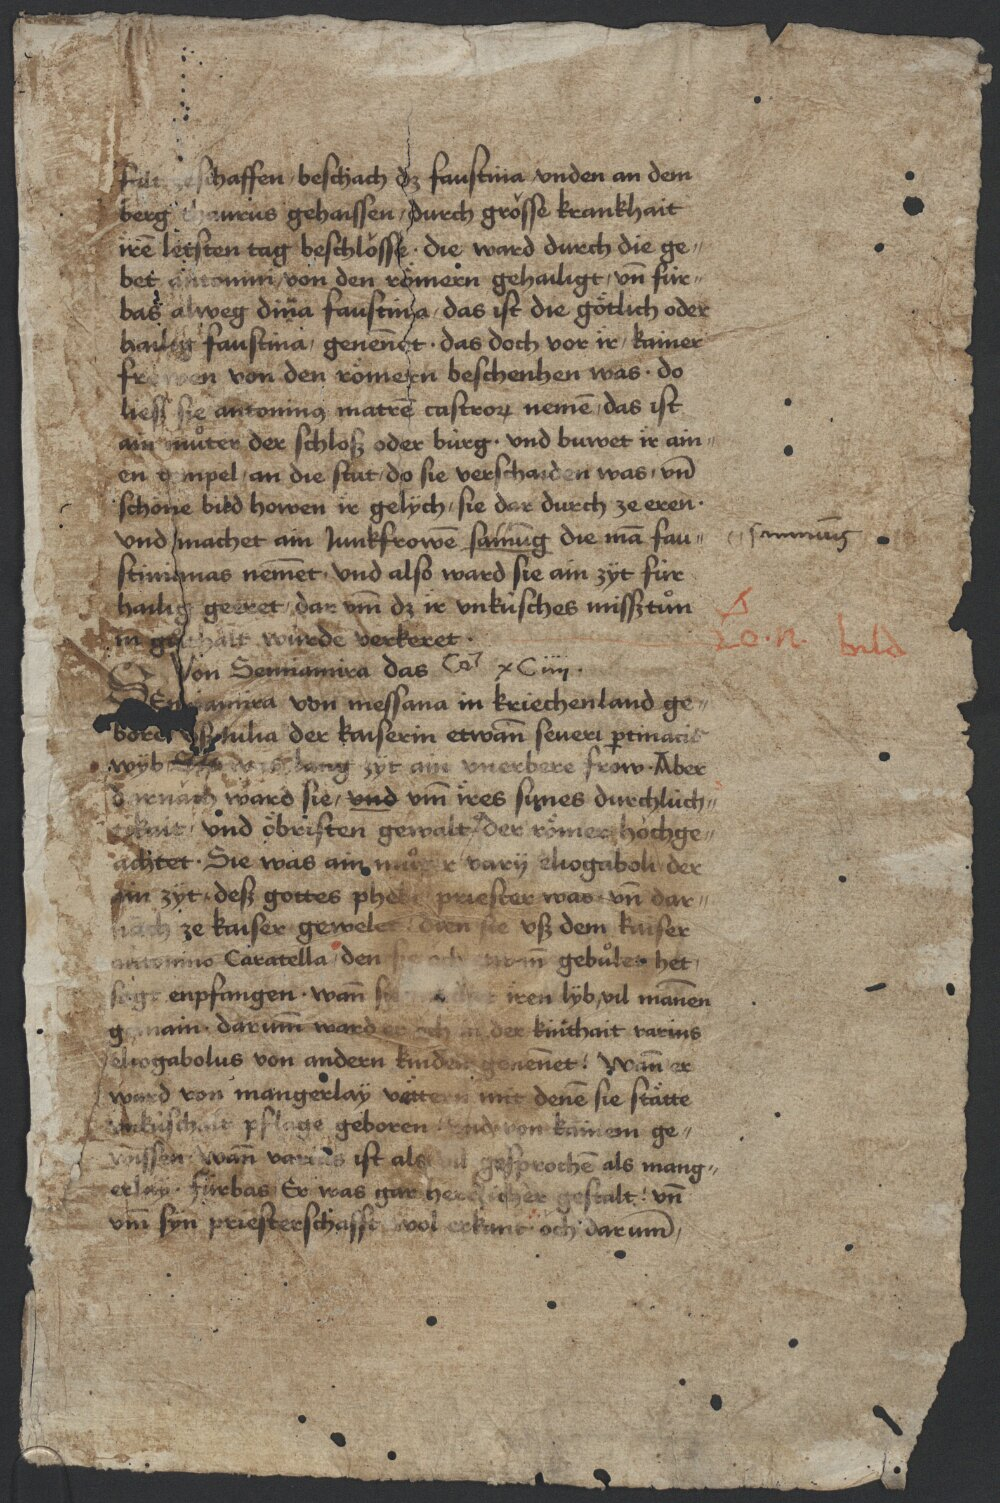 geschaffen / beschach dz faustina vnden an dem
berg thaurus gehaissen / durch grösse krankhait
irē letsten tag beschlosse · die ward durch die ge„
bet antonini / von den römern gehailigt / vn̄ für„
bas alweg diua faustina / das ist die götlich oder
hailig faustina / genen̄et · das doch vor ir / kainer
frowen von den römern beschenhen was · do
liesß sie antoninꝯ matrē castroꝝ nemē / das ist
ain muͦter der schloß oder bürg · vnd buwet ir ain„
en tempel / an die stat / do sie verschaiden was / vn̄
schöne bild howen ir gelych / sie dar durch ze eren ·
vnd machet ain Junkfrowē samūg die mā fau„
„ samnūg
stinianas nem̄et · vnd also ward sie ain zyt für
hailig geeret / dar vm̄ dz ir vnküsches misßtuͦn
in würde verkeret ·
Lo · n · bild
Von Semiamira das Ca⁷ xCiiij ·
SEmiamira von messana in kriechenland ge„
boren vß Julia der kaiserin etwan̄ seueri ꝑtinacis
wyb was lang zyt ain vnerbere frow · Aber
darnach ward sie / vnd vm̄ ires sunes durchlüch„
tikait / vnd öbristen gewalt / der römer hochge„
achtet · Sie was ain muͦter varij eliogaboli / der
ain zyt / deß gottes phebi priester was / vn̄ dar„
nach ze kaiser gewelet / dien sie vß dem kaiser
antonino Caracella / den gebuͦlet het /
sagt enpfangen · wan̄ iren lyb / vil man̄en
gemain · darum̄ ward er och in der kinthait varius
eliogabolus von andern kinden genen̄et / Wan̄ er
ward von mangerlay vettern mit denē sie stätte
vnküschait pflage geboren / vnd von kainem ge„
wissen · wan̄ varius ist als vil gesprochē als mang„
erlay · fürbas Er was gar herlicher gestalt / vn̄
vm̄ syn priesterschafft wol erkant och darum̄ /